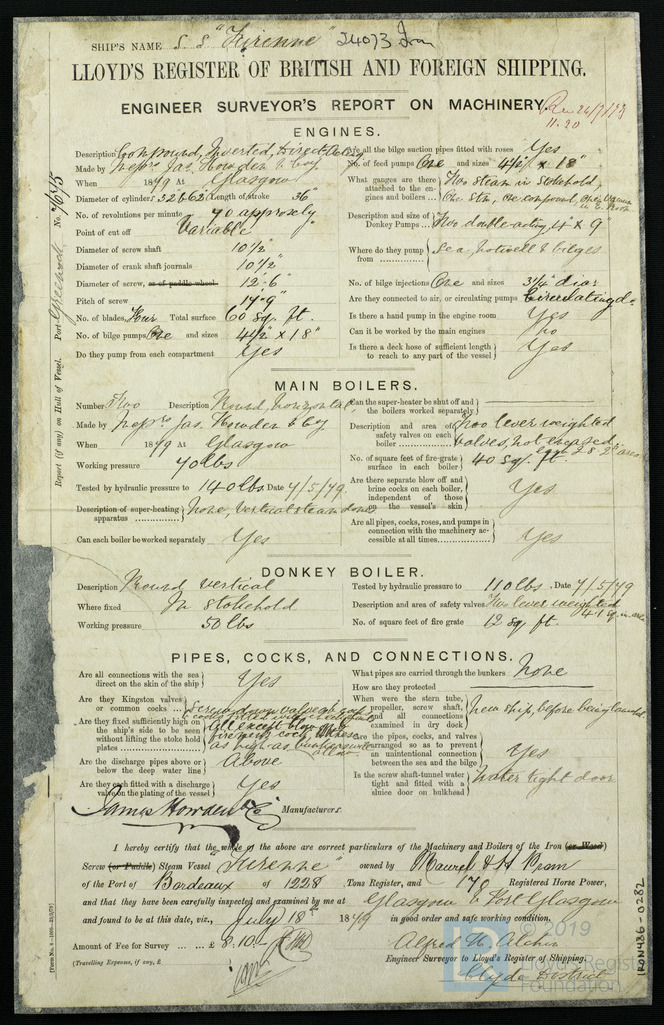 SHIP'S NAME S.S "Turenne" 24073 Iron
LLOYD'S REGISTER OF BRITISH AND FOREIGN SHIPPING.
ENGINEER SURVEYOR'S REPORT ON MACHINERY.
ENGINES.
Description Compound, Inverted, Direct Acting
Made by Messrs Jas. Howden & Coy
When 1879 At Glasgow
Diameter of cylinders 32" & 62" Length of stroke 36"
No. of revolutions per minute 70 approxely
Point of cut off Variable
Diameter of screw shaft 10 1/2"
Diameter of crank shaft journals 10 1/2"
Diameter of screw, or of paddle wheel 12-6"
Pitch of screw 17-9"
No. of blades, Four Total surface 60 sq. ft.
No. of bilge pumps One and sizes 4 1/2" x 18"
Do they pump from each compartment Yes
Are all the bilge suction pipes fitted with roses Yes
No. of feed pumps One and sizes 4 1/2" x 18"
What gauges are there attached to the engines and boilers Two steam in stokehold, One Stm, one compound, one Vacuum in E. Room
Description and size of Donkey Pumps Two double acting 4" x 9
Where do they pump from Sea, hotwell & bilges
No. of bilge injections One and sizes 3 1/4" diar
Are they connected to air, or circulating pumps Circulating do.
Is there a hand pump in the engine room Yes
Can it be worked by the main engines no
Is there a deck hose of sufficient length to reach to any part of the vessel Yes
Report (if any) on Hull of Vessel. Port Greenock No. 7645
MAIN BOILERS.
Number Two Description Round, horizontal,
Made by Messrs Jas. Howden & Coy
When 1879 At Glasgow
Working pressure 70 lbs
Tested by hydraulic pressure to 140 lbs Date 7/5/79.
Description of super-heating apparatus None, vertical steam domes
Can each boiler be worked separately Yes
Can the super-heater be shut off and the boilers worked separately
Description and area of safety valves on each boiler Two lever weighted valves, not encased
No. of square feet of fire-grate surface in each boiler 40 sq. ft.
Are there separate blow off and brine cocks on each boiler, independent of those on the vessel's skin Yes
Are all pipes, cocks, roses, and pumps in connection with the machinery accessible at all times Yes
DONKEY BOILER.
Description Round vertical
Where fixed In stokehold
Working pressure 50 lbs
Tested by hydraulic pressure to 110 lbs. Date 7/5/79
Description and area of safety valves Two lever weighted
No. of square feet of fire grate 12 sq. ft.
PIPES, COCKS, AND CONNECTIONS.
Are all connections with the sea direct on the skin of the ship Yes
Are they Kingston valves or common cocks
Are they fixed sufficiently high on the ship's side to be seen without lifting the stoke hold plates All except blow off
Are the discharge pipes above or below the deep water line Above
Are they each fitted with a discharge valve on the plating of the vessel Yes
What pipes are carried through the bunkers None
How are they protected
When were the stern tube, propeller, screw shaft, and all connections examined in dry dock New ship, before being launched
Are the pipes, cocks, and valves arranged so as to prevent an unintentional connection between the sea and the bilge Yes
Is the screw shaft-tunnel water tight and fitted with a sluice door on bulkhead Water tight door
James Howden & Co Manufacturers.
I hereby certify that the whole of the above are correct particulars of the Machinery and Boilers of the Iron (or Wood)
Screw (or Paddle) Steam Vessel "Turenne" owned by Maurel & H Prom
of the Port of Bordeaux of 1228 Tons Register, and 170 Registered Horse Power,
and that they have been carefully inspected and examined by me at Glasgow & Port Glasgow
and found to be at this date, viz., July 18th 1879 in good order and safe working condition.
Amount of Fee for Survey £ 8.10.-
Alfred H. Alcher
Engineer Surveyor to Lloyd's Register of Shipping.
Clyde District
(Travelling Expenses, if any, £ )
© 2019
Lloyd's Register
Foundation
IRON486-0282